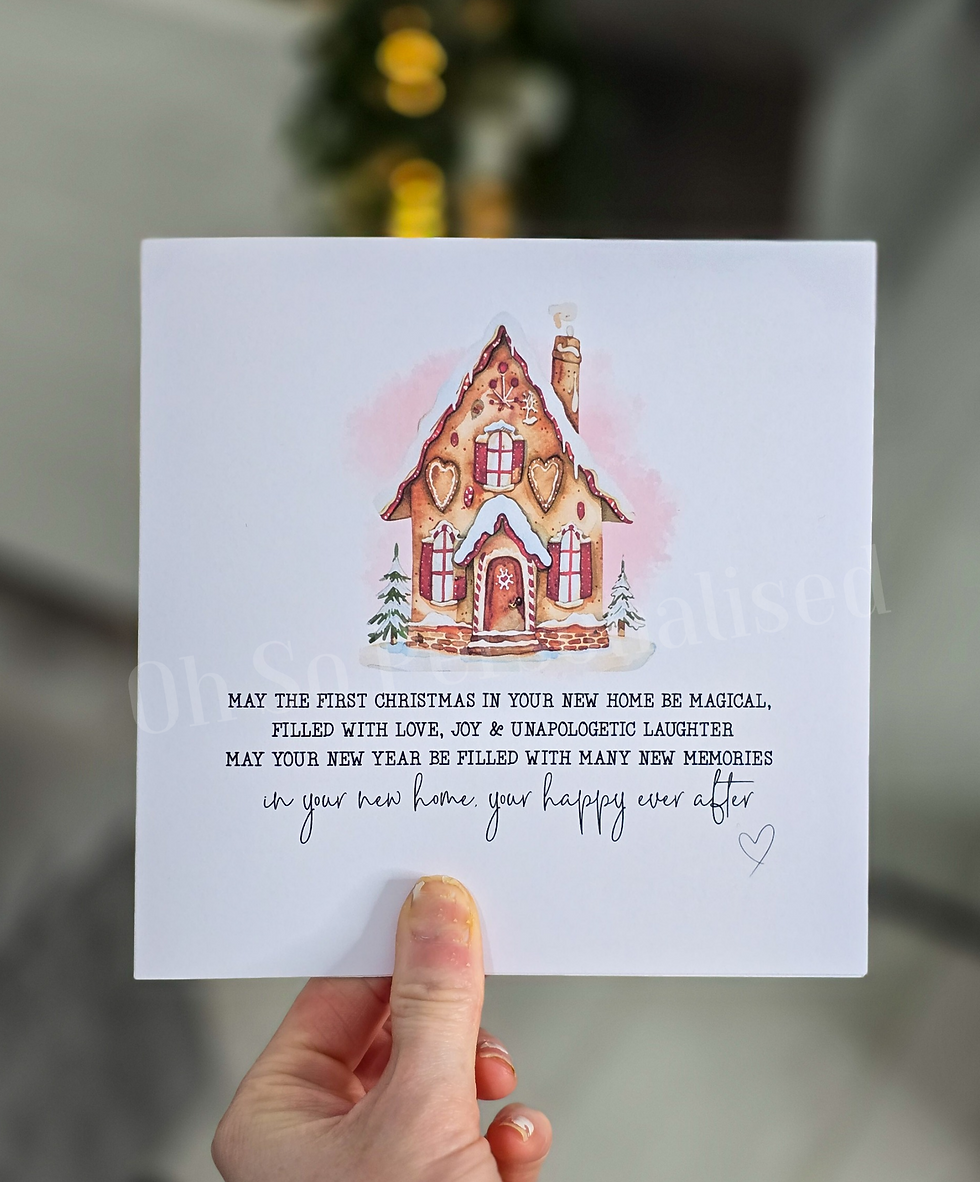 Oh So Personalised
MAY THE FIRST CHRISTMAS IN YOUR NEW HOME BE MAGICAL,
FILLED WITH LOVE, JOY & UNAPOLOGETIC LAUGHTER
MAY YOUR NEW YEAR BE FILLED WITH MANY NEW MEMORIES
in your new home, your happy ever after